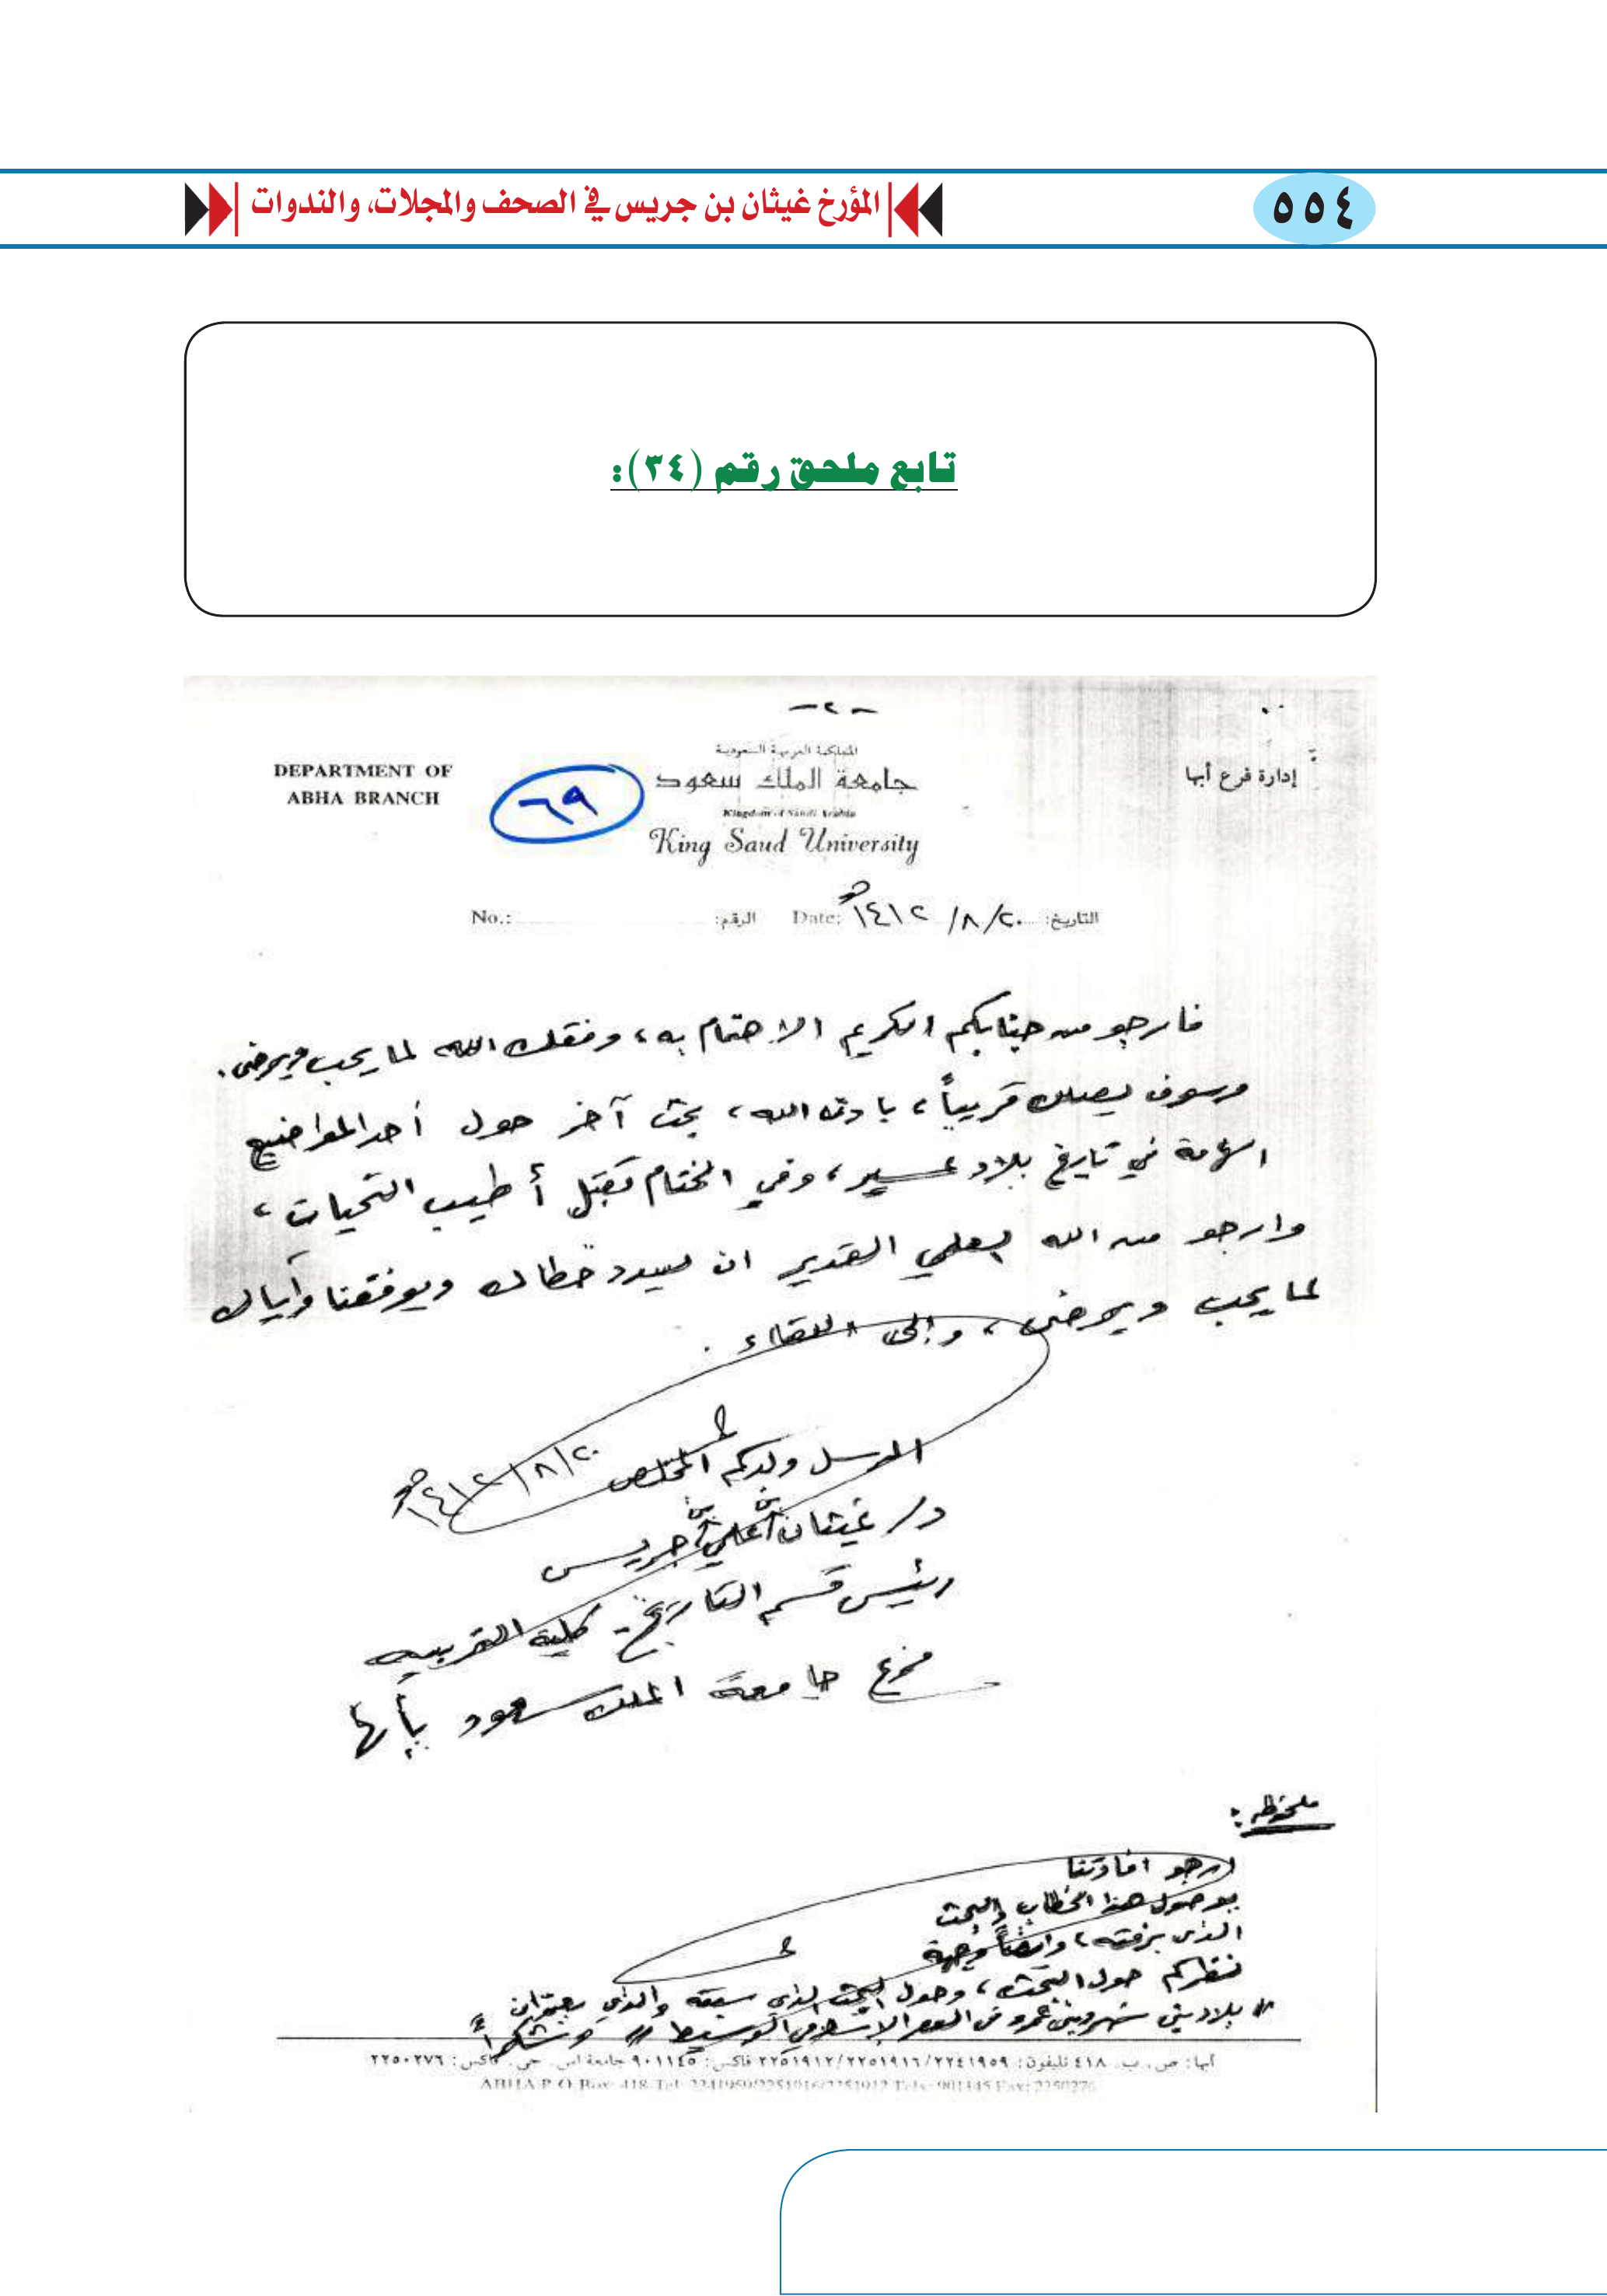 ٥٥٤
المؤرخ غيثان بن جريس في الصحف والمجلات، والندوات
تابع ملحق رقم (٣٤):
-٢-
المملكة العربية السعودية
إدارة فرع أبها
جامعة الملك سعود
٦٩
DEPARTMENT OF
ABHA BRANCH
Kingdom of Saudi Arabia
King Saud University
التاريخ: ٢٠/٨/١٤١٢هـ Date: الرقم: No.:
فارجو من جنابكم الكريم الاهتمام به، وفقك الله لما يحب ويرضى.
وسوف يصلك قريباً، باذن الله، بحث آخر حول أحد المواضيع
الهامة في تاريخ بلاد عسير، وفي الختام تقبل أطيب التحيات،
وارجو من الله العلي القدير ان يسدد خطاك ويوفقنا وأياك
لما يحب ويرضى، وإلى اللقاء.
المرسل ولدكم المخلص ٢٠/٨/١٤١٢هـ
د/ غيثان بن علي بن جريس
رئيس قسم التاريخ - كلية التربيه
فرع جامعة الملك سعود بأبها
ملحوظه:
ارجو افادتنا
بوصول هذا الخطاب والبحث
الذي برفقته، وايضاً وجهة
نظركم حول البحث، وحول البحث الذي سبقه والذي بعنوان
" بلاد بني شهر وبني عمرو في العصر الإسلامي الوسيط " وشكراً
أبها: ص. ب. ٤١٨ تليفون: ٢٢٤١٩٥٩/٢٢٥١٩١٦/٢٢٥١٩١٢ فاكس: ٩٠١١٤٥ جامعة اس. جي. فاكس: ٢٢٥٠٢٧٦
ABHA P.O. Box: 418 Tel: 2241959/2251916/2251912 Telx: 901145 Fax: 2250276